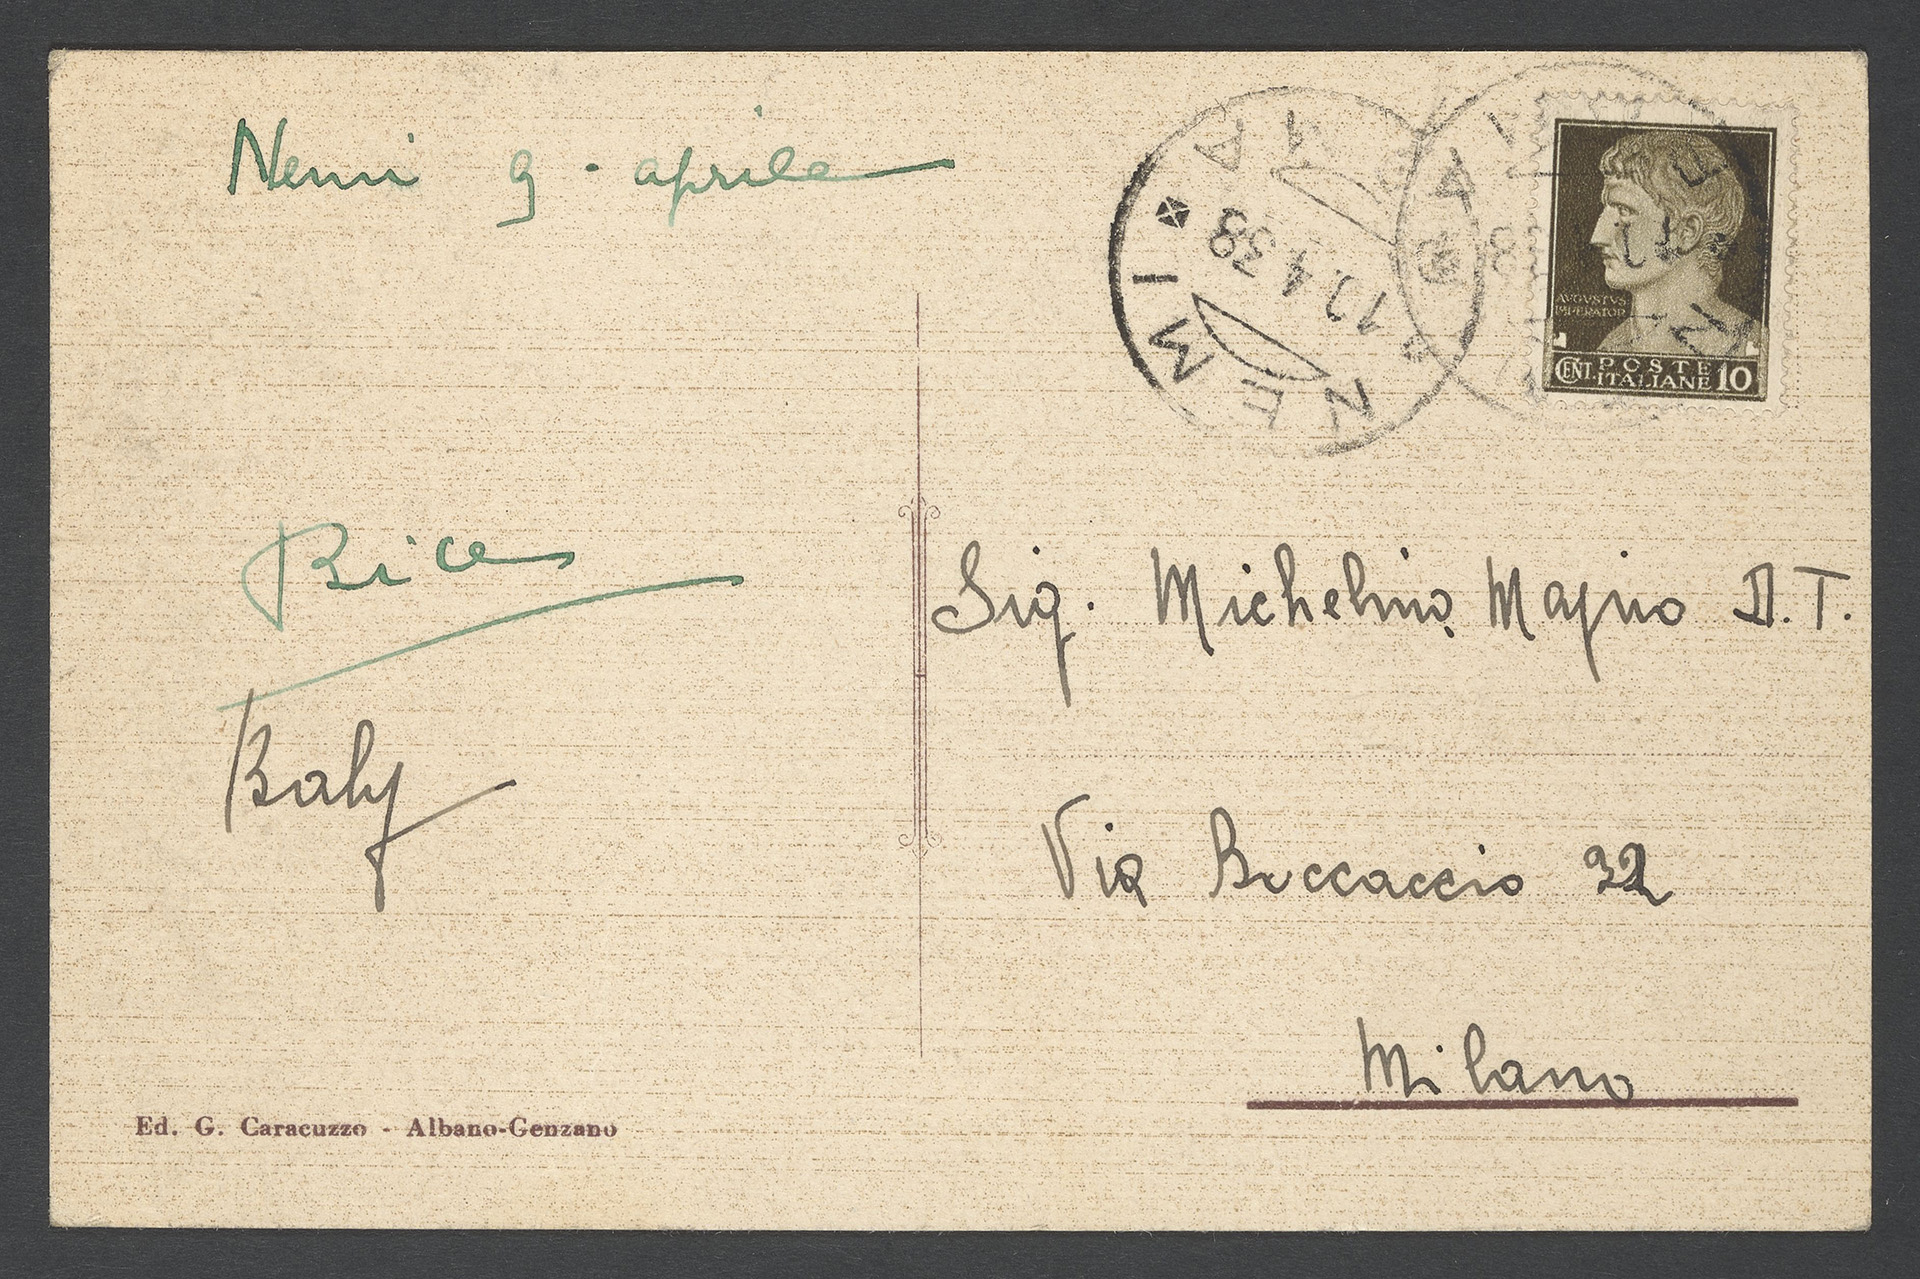 Nemi 9 - aprile
NEMI
10.4.38
AVGVSTVS
IMPERATOR
CENT. POSTE
ITALIANE 10
Bice
Baby
Sig. Michelino Majno D.T.
Via Boccaccio 32
Milano
Ed. G. Caracuzzo - Albano-Genzano